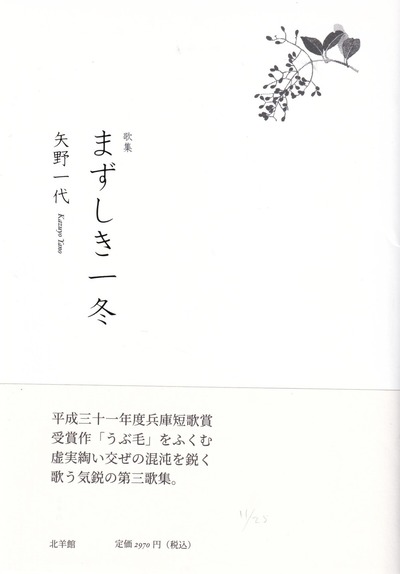 歌集
まずしき一冬
矢野一代
Kazuyo Yano
平成三十一年度兵庫短歌賞
受賞作「うぶ毛」をふくむ
虚実綯い交ぜの混沌を鋭く
歌う気鋭の第三歌集。
11/23
北羊館
定価2970円（税込）